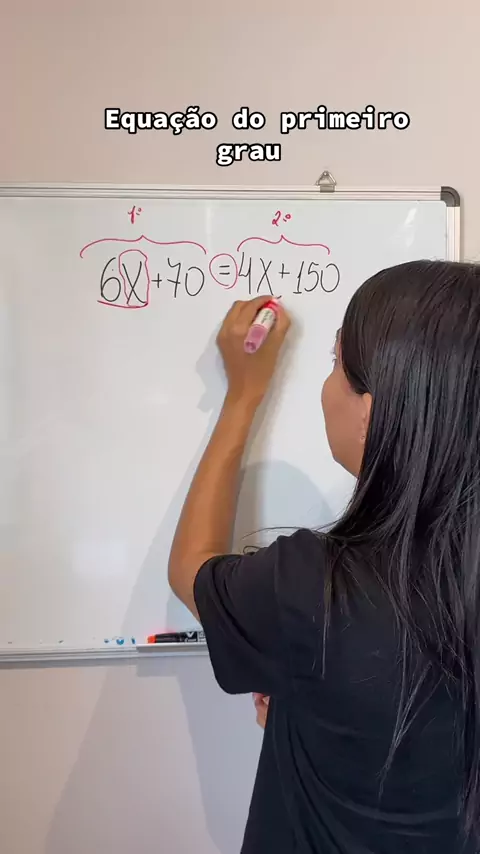 Equação do primeiro
grau
1º 2º
6X+70=4X+150